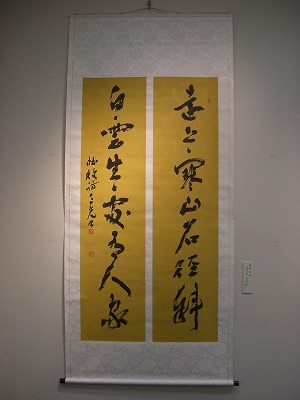 遠上寒山石徑斜
白雲生處有人家
杜牧詩